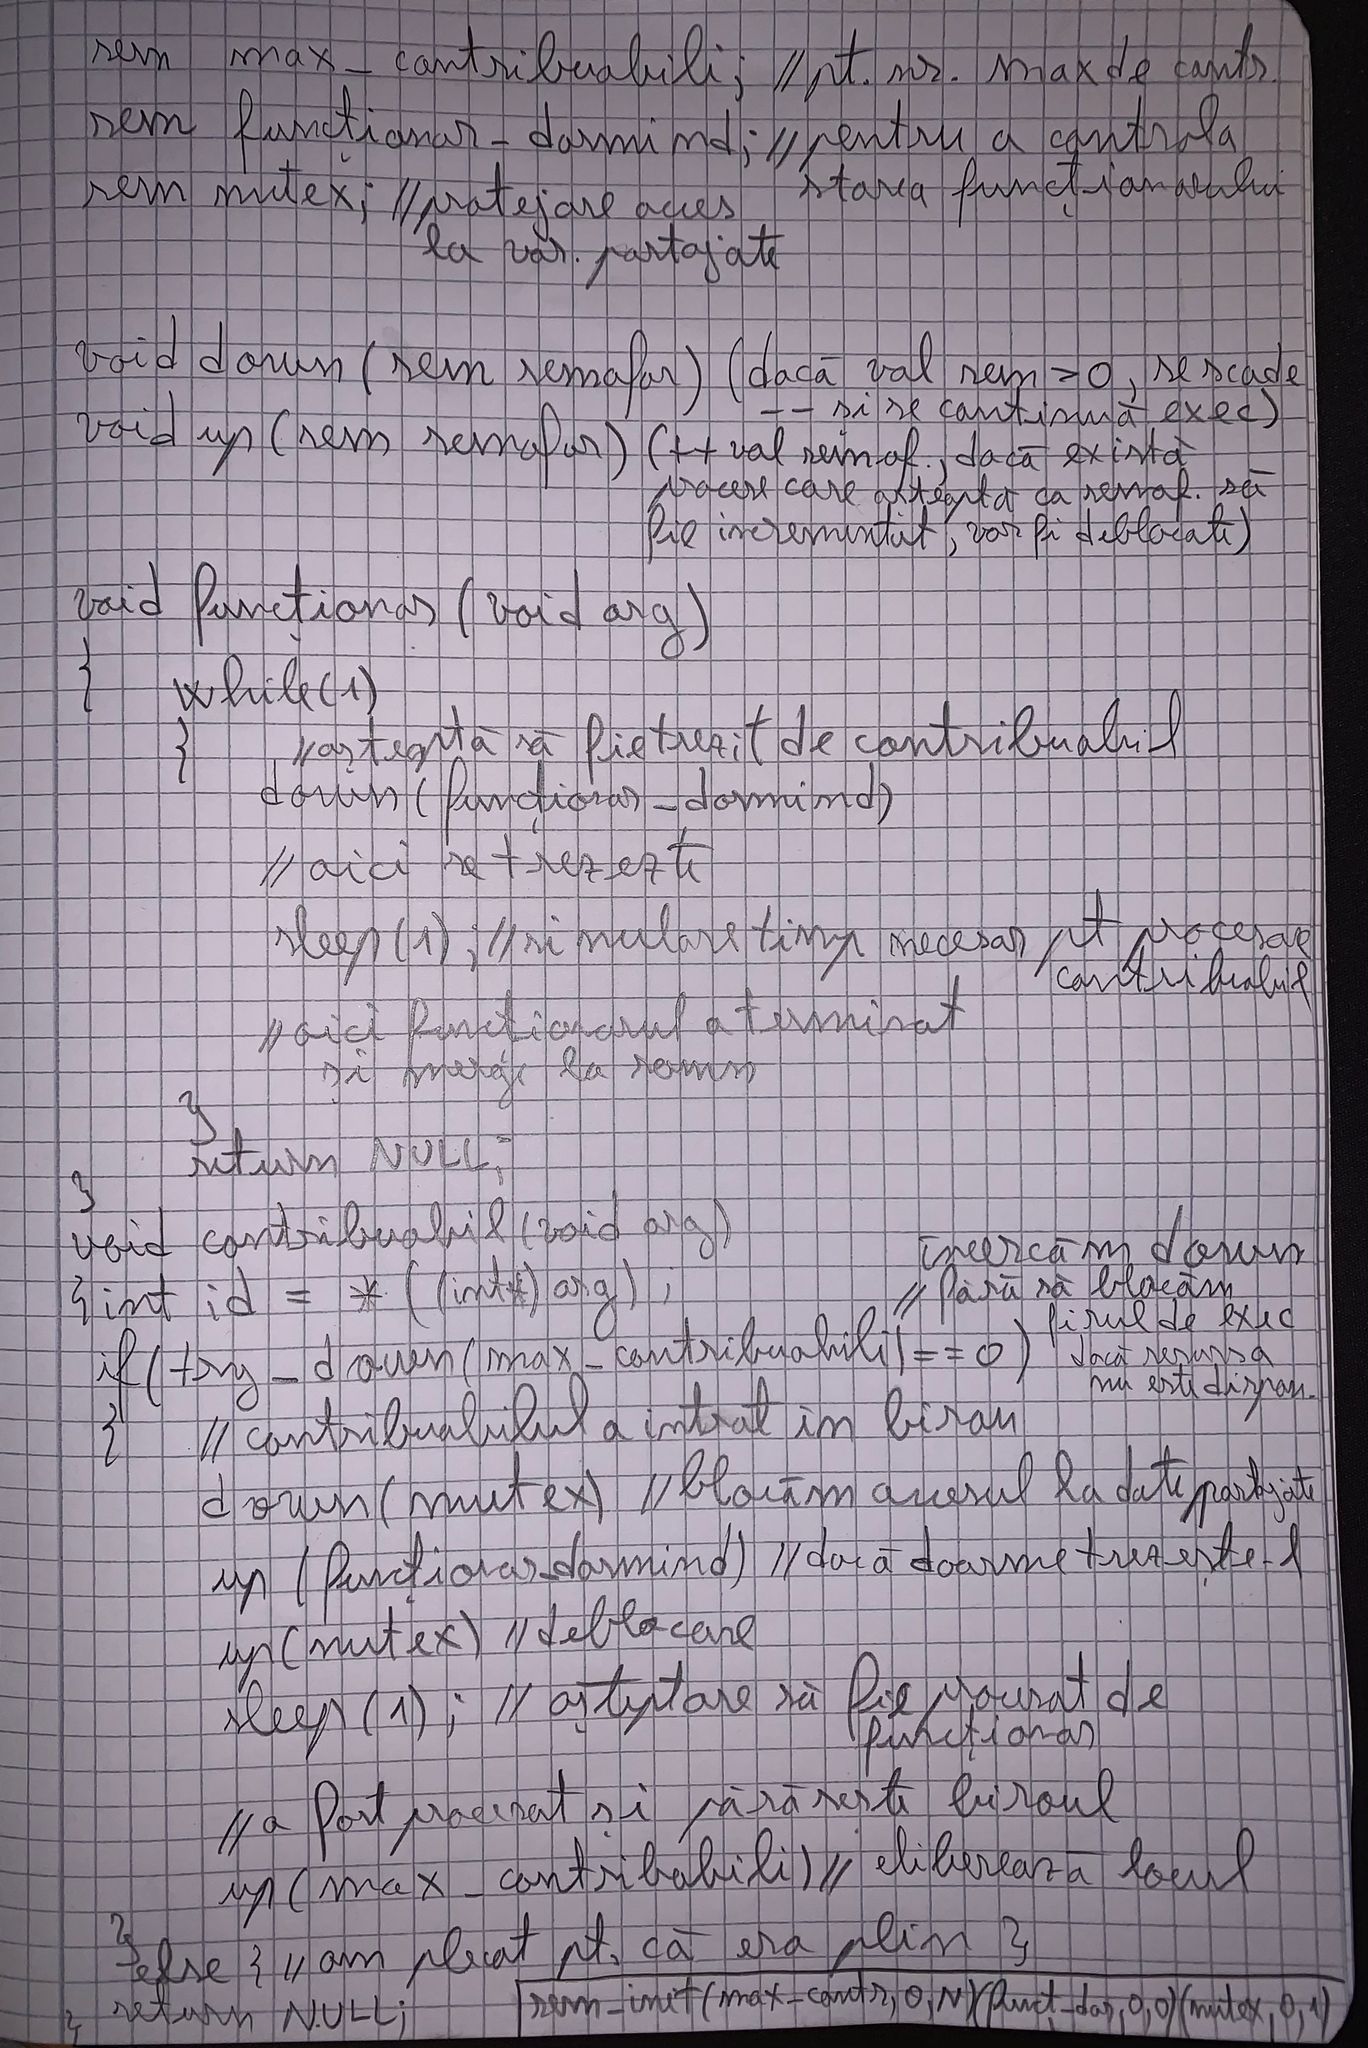 sem max_contribuabili; //pt. nr. max de contr.
sem funcționar_dormind; //pentru a controla
starea funcționarului
sem mutex; //protejare acces
la var. partajate
void down (sem semafor) (dacă val sem > 0, se scade
-- și se continuă exec)
void up (sem semafor) (++ val semaf., dacă există
procese care așteaptă ca semaf. să
fie incrementat, vor fi deblocate)
void funcționar (void arg)
{ while(1)
{ //așteaptă să fie trezit de contribuabil
down (funcționar_dormind)
//aici se trezește
sleep(1); //simulare timp necesar pt procesare
contribuabil
//aici funcționarul a terminat
și merge la somn
}
return NULL;
}
void contribuabil (void arg)
{ int id = *((int*) arg);
încercăm down
// fără să blocăm
firul de exec
if (try_down (max_contribuabili) == 0) dacă resursa
nu este dispon.
{ // contribuabilul a intrat în birou
down (mutex) //blocăm accesul la date partajate
up (funcționar_dormind) //dacă doarme trezește-l
up (mutex) //deblocare
sleep (1); // așteptare să fie procesat de
funcționar
//a fost procesat și părăsește biroul
up (max_contribabili) // eliberează locul
}
else { // am plecat pt. că era plin }
return NULL;
}
sem_init (max_contr, 0, N) (funct_dor, 0, 0) (mutex, 0, 1)